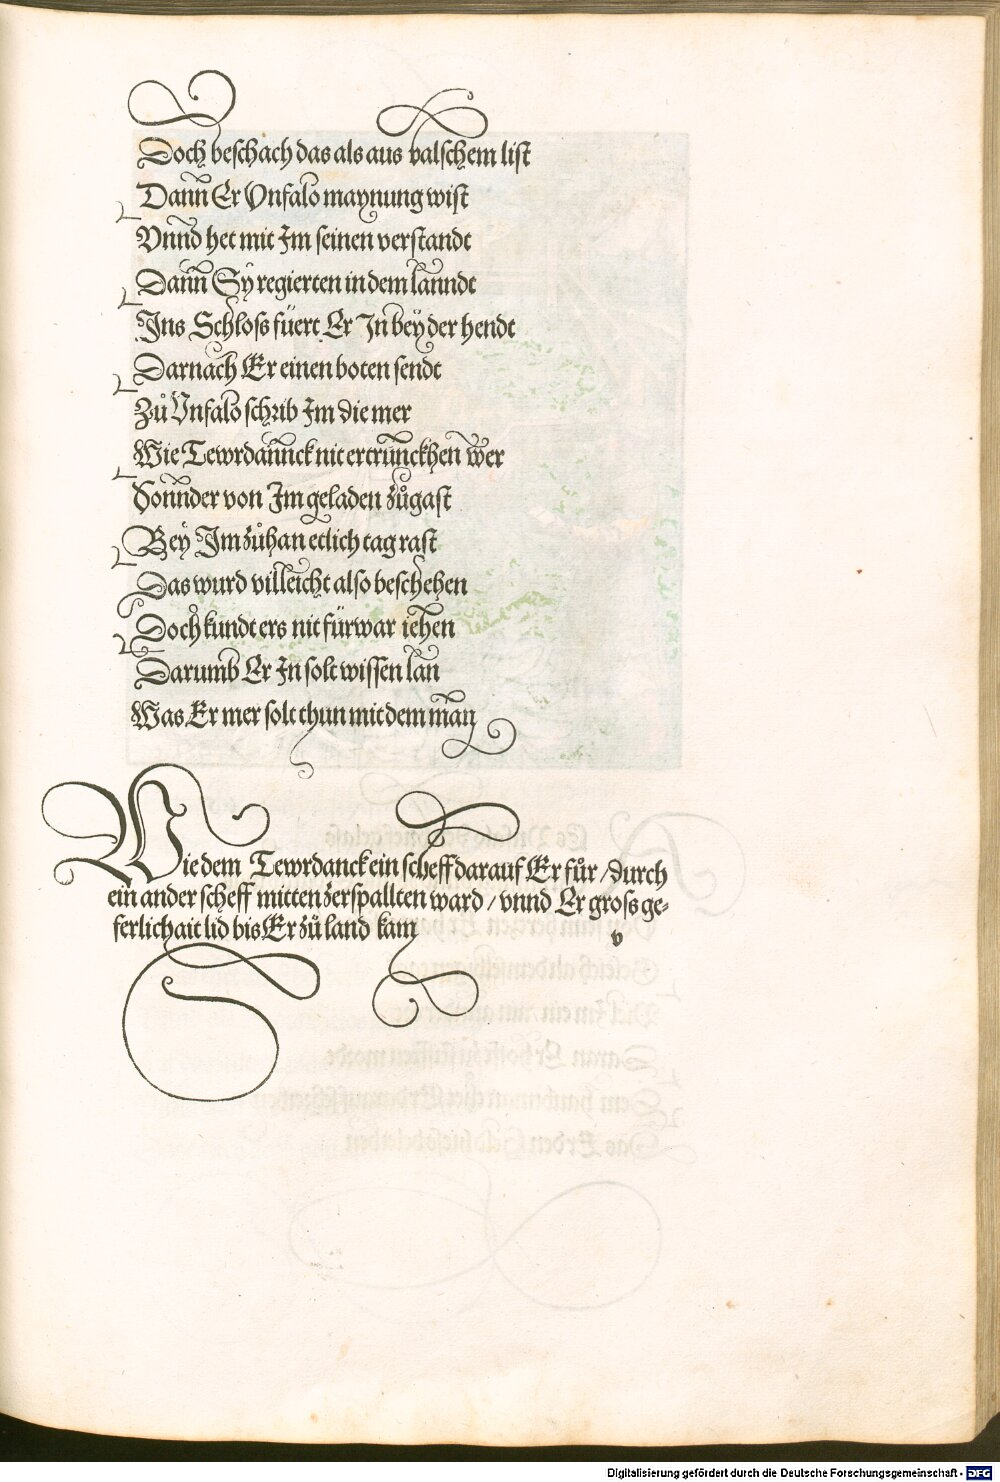 Doch beschach das als aus valschem list
Dann Er Vnfalo maynung wist
Vnnd het mit Im seinen verstandt
Dann Sÿ regierten in dem lanndt
Ins Schloss füert Er In beÿ der hendt
Darnach Er einen boten sendt
Zů Vnfalo schrib Im die mer
Wie Tewrdannck nit ertrunckhen wer
Sonnder von Im geladen zůgast
Beÿ Im zůhan etlich tag rast
Das wurd villeicht also beschehen
Doch kundt ers nit fürwar iehen
Darumb Er In solt wissen lan
Was Er mer solt thun mit dem man
Wie dem Tewrdanck ein scheff darauf Er fůr / durch
ein ander scheff mitten zerspallten ward / vnnd Er gross ge-
ferlichait lid bis Er zů land kam
v
Digitalisierung gefördert durch die Deutsche Forschungsgemeinschaft - DFG